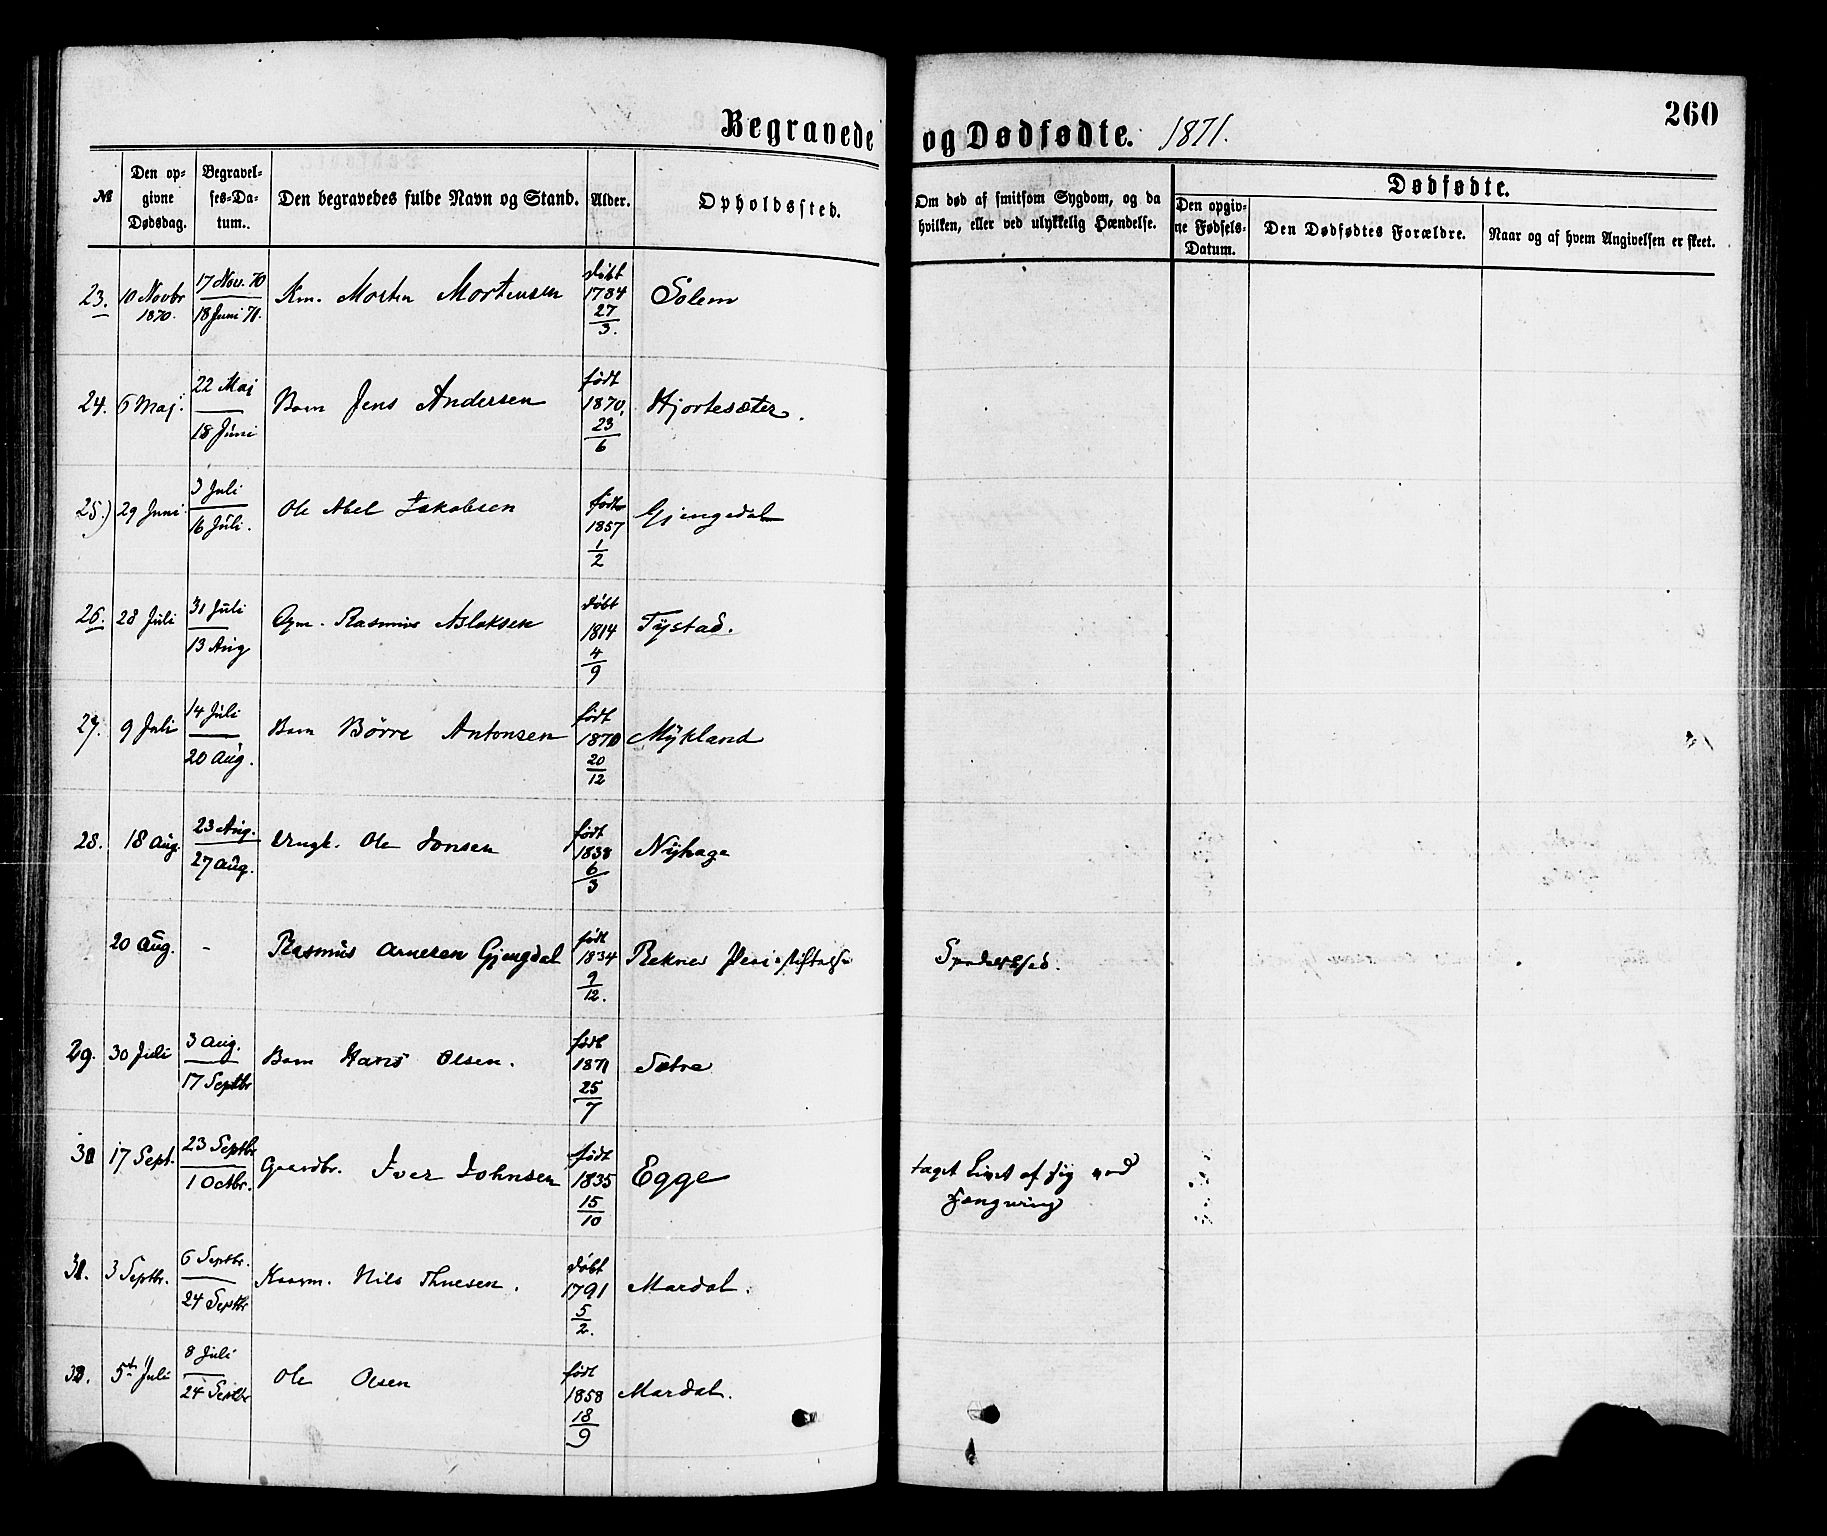 Begravede og Dødfødte. 1871.
260
№
Den opgivne Dødsdag.
Begravelses-Datum.
Den begravedes fulde Navn og Stand.
Alder.
Opholdssted.
Om død af smitsom Sygdom, og da hvilken, eller ved ulykkelig Hændelse.
Dødfødte.
Den opgivne Fødsels-Datum.
Den Dødfødtes Forældre.
Naar og af hvem Angivelsen er skeet.
23. 10 Novbr 1870. 17 Nov. 70 18 Juni 71. Km. Morten Mortensen døbt 1784 27/3. Solem
24. 6 Maj. 22 Maj 18 Juni Barn Jens Andersen født 1870, 23/6 Hjortesæter.
25.) 29 Juni 3 Juli 16 Juli. Ole Abel Jakobsen født 1857 1/2 Gjengedal
26. 28 Juli 31 Juli 13 Aug Rasmus Aslaksen døbt 1814 4/9 Tystad.
27. 9 Juli 14 Juli 20 Aug. Barn Børre Antonsen født 1870 20/12 Mykland
28. 18 Aug. 23 Aug. 27 Aug. Ungk. Ole Jonsen født 1838 6/3 Nyhage
20 Aug. - Rasmus Arnesen Gjengdal født 1834 9/12. Reknes Spedalskhed.
29. 30 Juli 3 Aug. 17 Septbr Barn Hans Olsen. født 1871 25/7 Sætre
30 17 Sept. 23 Septbr 1 Octbr. Gaardbr. Iver Johnsen født 1835 15/10 Egge taget Livet af sig ved Hængning
31. 3 Septbr. 6 Septbr. 24 Septbr Kaarm. Nils Thuesen. døbt 1791 5/2. Mardal.
32. 5te Juli 8 Juli 24 Septbr Ole Olsen født 1858 18/9 Mardal.